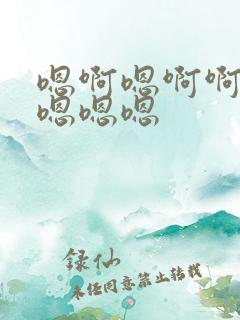 嗯啊嗯啊啊
嗯嗯嗯
録仙
未经同意禁止转载